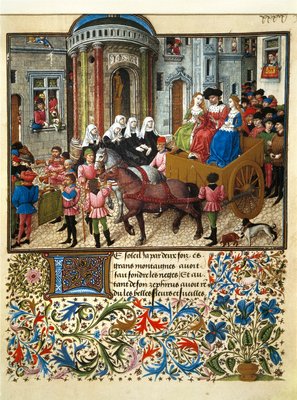 LE soleil ja par deux foiz es
grans montaignes auoit
fait fondre les neges Et au
tant de fois zephirus auoit re
du les belles fleurs et fueilles